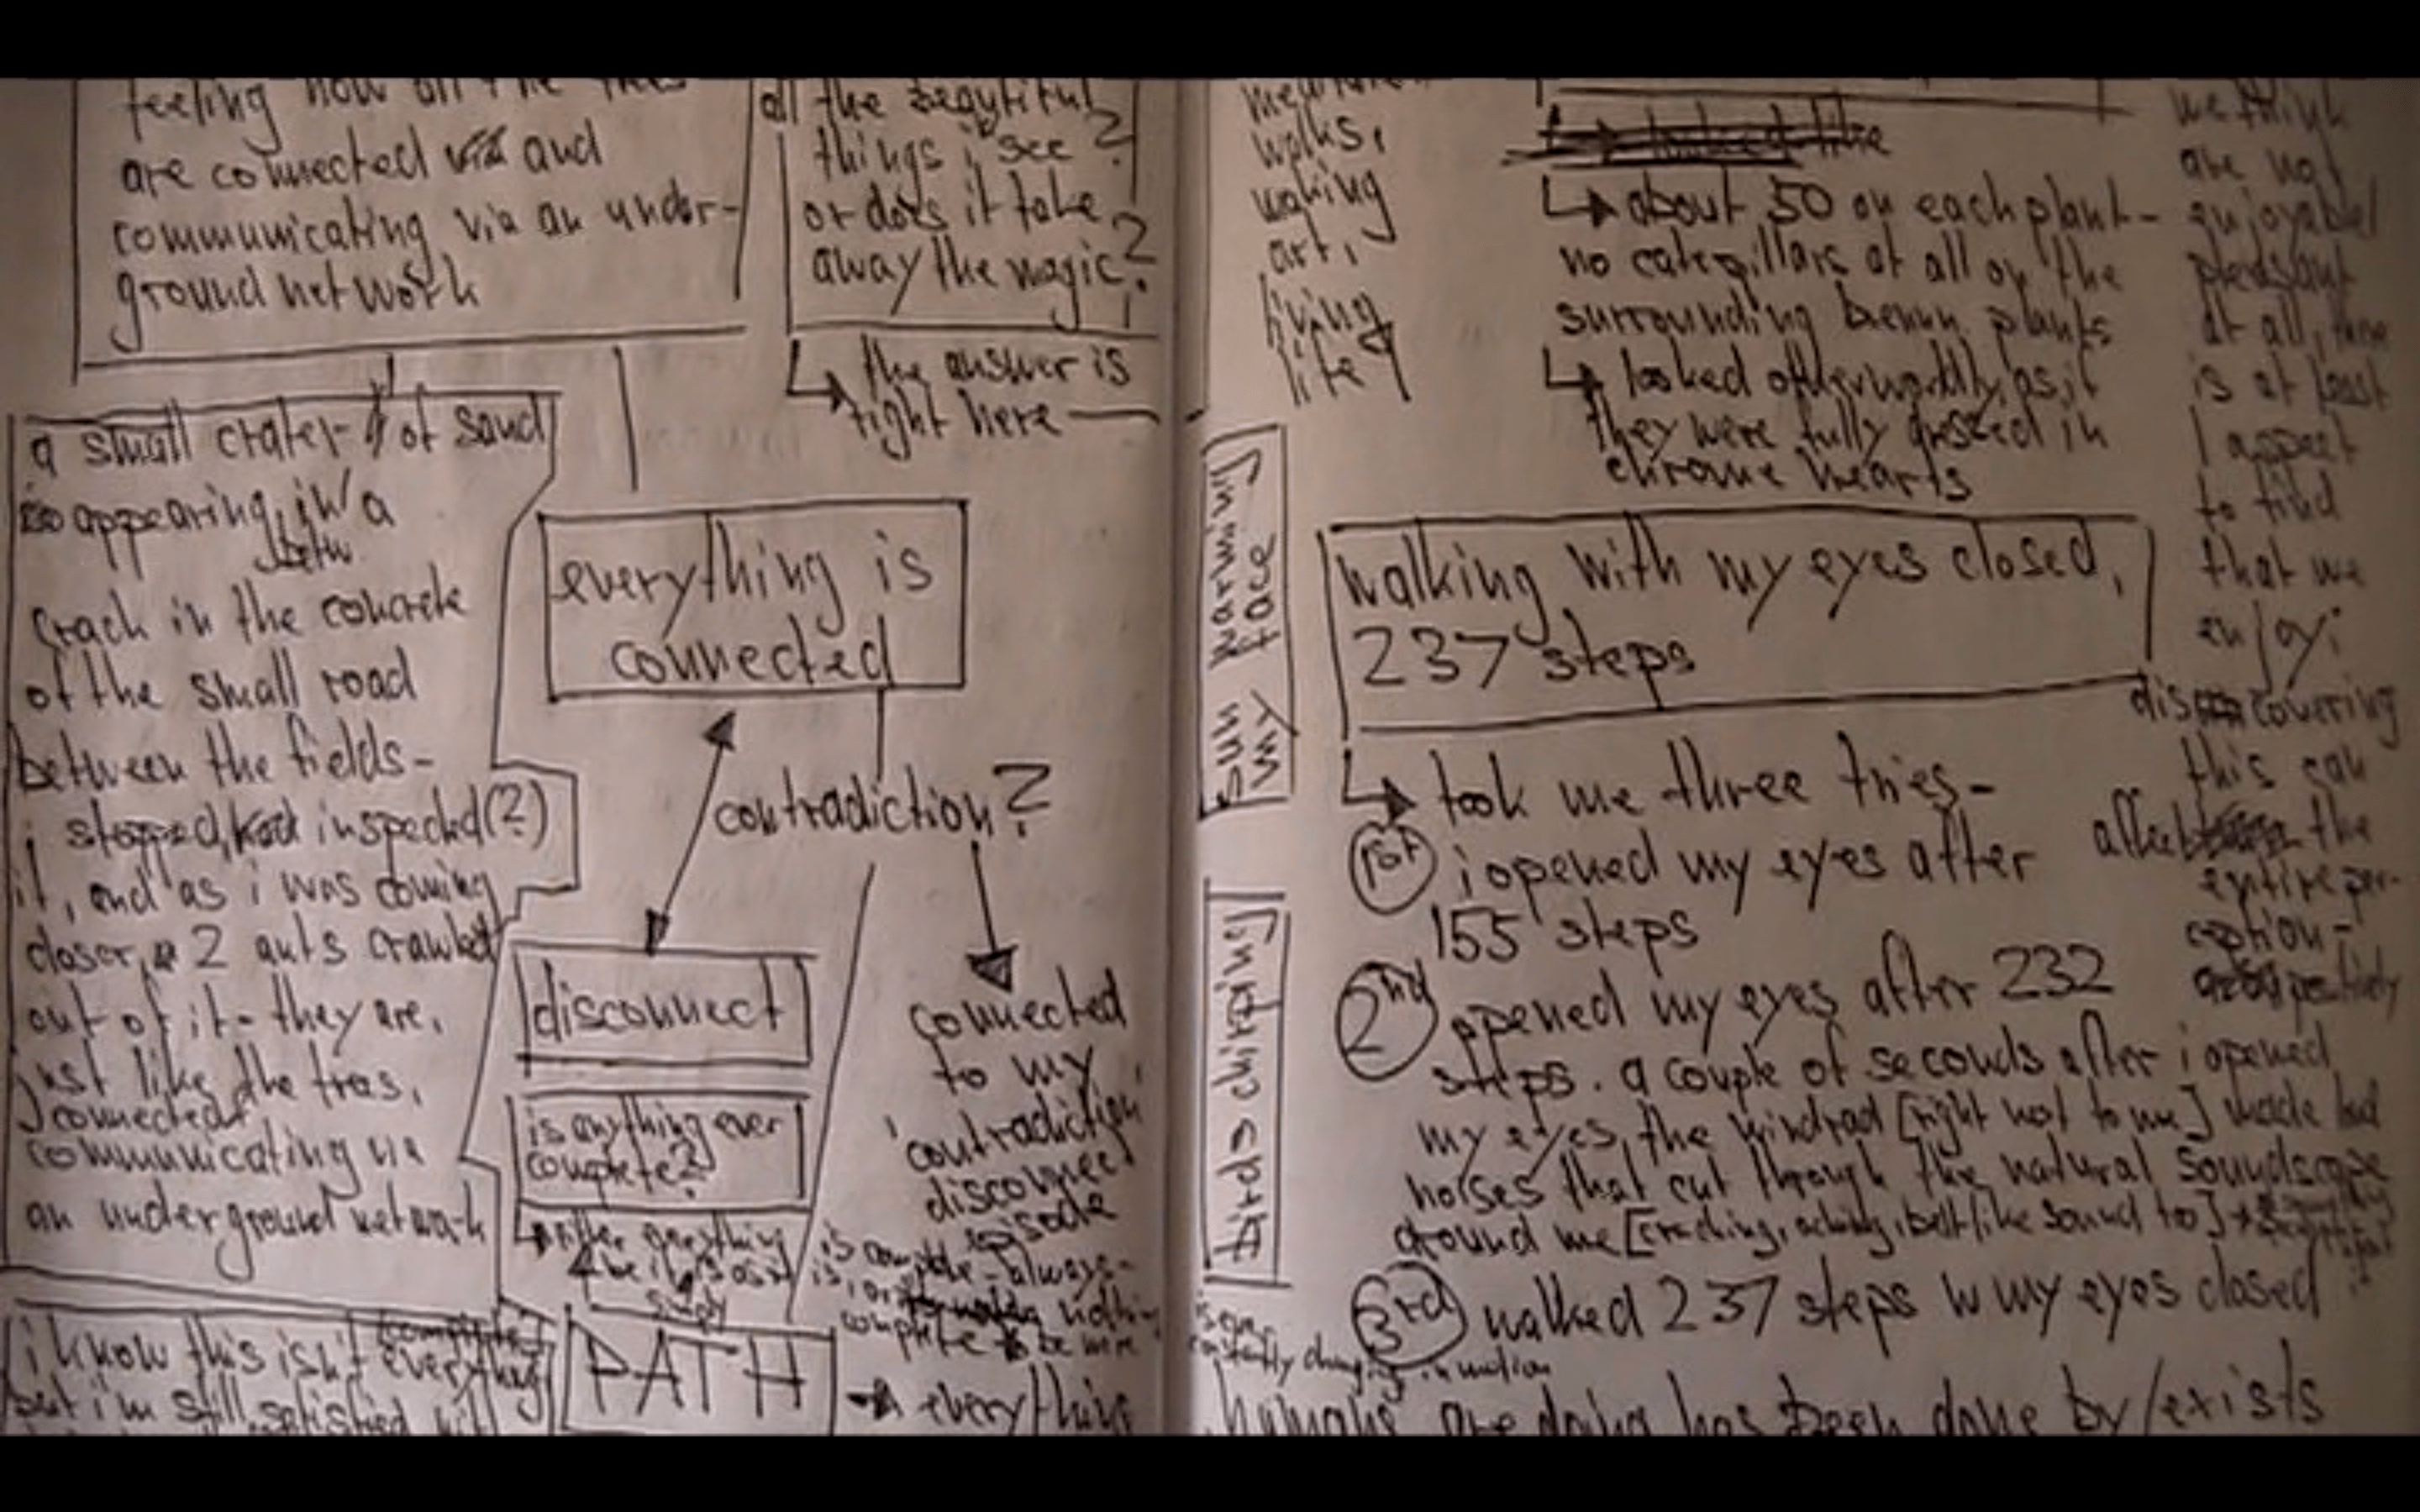 feeling how all the trees
are connected via and
communicating via an under-
ground network
all the beautiful
things i see?
or does it take
away the magic?
the answer is
right here
a small crater of sand
is appearing in a
betw
crack in the concrete
of the small road
between the fields-
i stopped, inspected(?)
it, and as i was coming
closer, 2 ants crawled
out of it - they are,
just like the trees,
connected
communicating via
an underground network
everything is
connected
contradiction?
disconnect
is anything ever
complete?
connected
to my
'contradiction
disconnect
episode
is complete - always -
complete to be
→ everything
i know this isn't everything
but i'm still satisfied
PATH
walks,
making
art,
living
life
looked like
↳ about 50 on each plant -
no caterpillars at all on the
surrounding plants
↳ looked otherworldly, as if
they were fully dressed in
chrome hearts
sun warming
my face
walking with my eyes closed,
237 steps
↳ took me three tries -
i opened my eyes after
155 steps
2nd opened my eyes after 232
steps. a couple of seconds after i opened
my eyes, the windrad [right next to me] made loud
noises that cut through the natural soundscape
around me [, , like sound to]
birds chirping
3rd walked 237 steps w my eyes closed
constantly changing, in motion
humans are doing has been done by/exists
we think
are not
enjoyable/
pleasant
at all, there
is at least
1 aspect
to find
that we
enjoy;
discovering
this can
affect the
entire per-
ception -